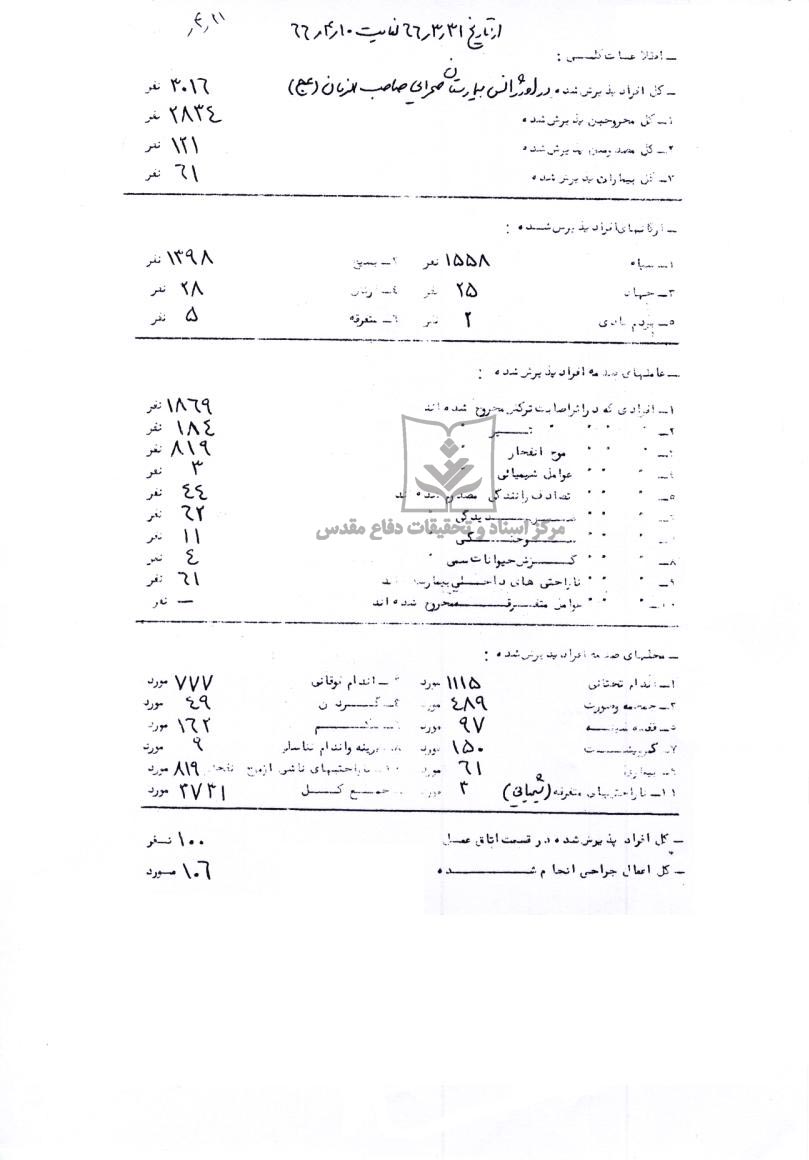 ۴٫۱۱
از تاریخ ۶۶٫۳٫۳۱ لغایت ۶۶٫۴٫۱۰
ـ اطلاعات کلی :
ـ کل افراد پذیرش شده در اورژانس بیمارستان صحرایی صاحب الزمان (عج) ۳۰۱۶ نفر
۱ـ کل مجروحین پذیرش شده ۲۸۳۴ نفر
۲ـ کل مصدومین پذیرش شده ۱۲۱ نفر
۳ـ کل بیماران پذیرش شده ۶۱ نفر
ـ ارگانهای افراد پذیرش شده :
۱ـ سپاه ۱۵۵۸ نفر ۲ـ بسیج ۱۳۹۸ نفر
۳ـ جهاد ۲۵ نفر ۴ـ ارتش ۲۸ نفر
۵ـ مردم عادی ۲ نفر ۶ـ متفرقه ۵ نفر
ـ عاملهای صدمه افراد پذیرش شده :
۱ـ افرادی که در اثر اصابت ترکش مجروح شده اند ۱۸۶۹ نفر
۲ـ " " " تیر " ۱۸۴ نفر
۳ـ " " " موج انفجار " ۸۱۹ نفر
۴ـ " " " عوامل شیمیائی " ۳ نفر
۵ـ " " " تصادف رانندگی مصدوم شده اند ۴۴ نفر
۶ـ " " " دیدگی " ۶۲ نفر
۷ـ " " " سوختگی " ۱۱ نفر
مرکز اسناد و تحقیقات دفاع مقدس
۸ـ " " " گزش حیوانات سمی " ۴ نفر
۹ـ " " " ناراحتی های داخلی بیمار شده اند ۶۱ نفر
۱۰ـ " " " عوامل متفرقه مجروح شده اند — نفر
ـ محلهای صدمه افراد پذیرش شده :
۱ـ اندام تحتانی ۱۱۱۵ مورد ۲ـ اندام فوقانی ۷۷۷ مورد
۳ـ جمجمه وصورت ۴۸۹ مورد ۴ـ گردن ۴۹ مورد
۵ـ قفسه سینه ۹۷ مورد ۶ـ شکم ۱۶۲ مورد
۷ـ کمر و پشت ۱۵۰ مورد ۸ـ واندام تناسلی ۹ مورد
۹ـ بیماری ۶۱ مورد ۱۰ـ ناراحتیهای ناشی ازموج انفجار ۸۱۹ مورد
۱۱ـ ناراحتیهای متفرقه (شیمیایی) ۳ مورد ـ جمع کل ۳۷۳۱ مورد
ـ کل افراد پذیرش شده در قسمت اتاق عمل ۱۰۰ نفر
ـ کل اعمال جراحی انجام شده ۱۰۶ مورد